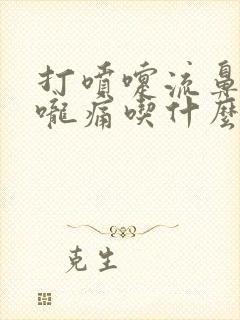 打噴嚏流鼻
嚨痛喫什麼
克生